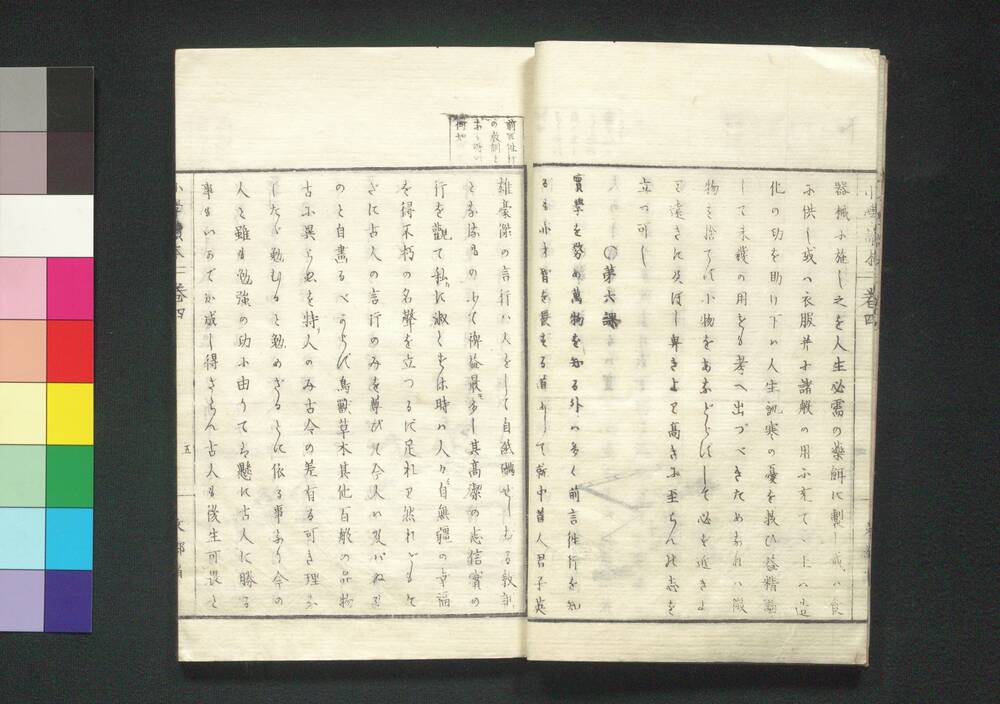 小學讀本 卷四
器械に施し之を人生必需の藥餌に製し或ハ食
に供し或ハ衣服并に諸般の用に充て上ハ造
化の功を助け下ハ人生飢寒の憂を救ひ益精
して未發の用をも考へ出づべきためなれハ微
物を捨て小物をあなどらにして必を近きよ
り遠きに及ぼし卑きより高きに至らん此志を
立つ可し
○第六課
實學を務め萬物を知る外ハ多く前言往行を知
るも亦才智を長ずる道にして中君人君子英
雄豪傑の言行ハ人をして自感せしむる教訓
となるもの少て裨益最多し其高潔の志信實の
行を觀て私に淑とせは時ハ人々自無疆の幸福
を得不朽の名聲を立つるに足れり然れども
さに古人の言行のみを尊びて今人ハ及バぬ
のと自畫るべからに鳥獸草木其他百般の品物
古に異らぬを特人のみ古今の差有る可き理
したゞ勉むると勉めざるとに依る事あり今の
人と雖も勉強の功に由りてハ懸に古人に勝る
事もいかでか成し得ざらん古人も後生可畏と
小學讀本 卷四
五
文部省
前言往行
の教訓と
何如